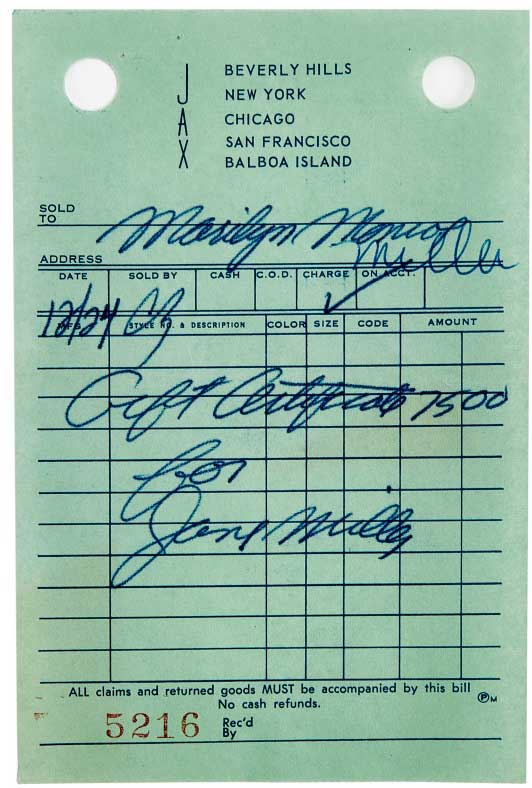 JAX
BEVERLY HILLS
NEW YORK
CHICAGO
SAN FRANCISCO
BALBOA ISLAND
SOLD TO Marilyn Monroe
Miller
ADDRESS
DATE SOLD BY CASH C.O.D. CHARGE ON ACCT.
12/24 ✓
MFG. STYLE NO. & DESCRIPTION COLOR SIZE CODE AMOUNT
Gift Certificate 7500
for
Jane Miller
ALL claims and returned goods MUST be accompanied by this bill
No cash refunds.
5216 Rec'd
By